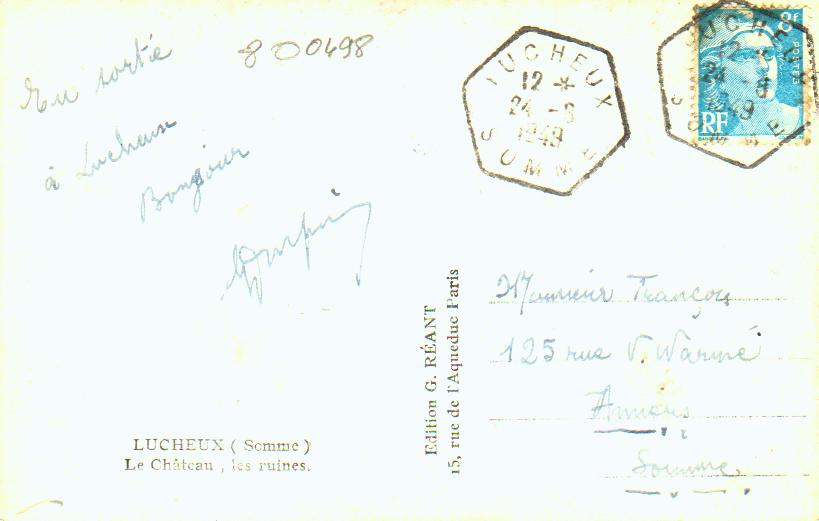 En sortie
à Lucheux
Bonjour
800498
LUCHEUX (Somme)
Le Château, les ruines.
Edition G. RÉANT
15, rue de l'Aqueduc Paris
LUCHEUX
12 *
24 - 8
1949
SOMME
LUCHEUX
12
24 - 8
1949
SOMME
8f
POSTES
RF
Monsieur Françou
125 rue V. Warmé
Amiens
Somme